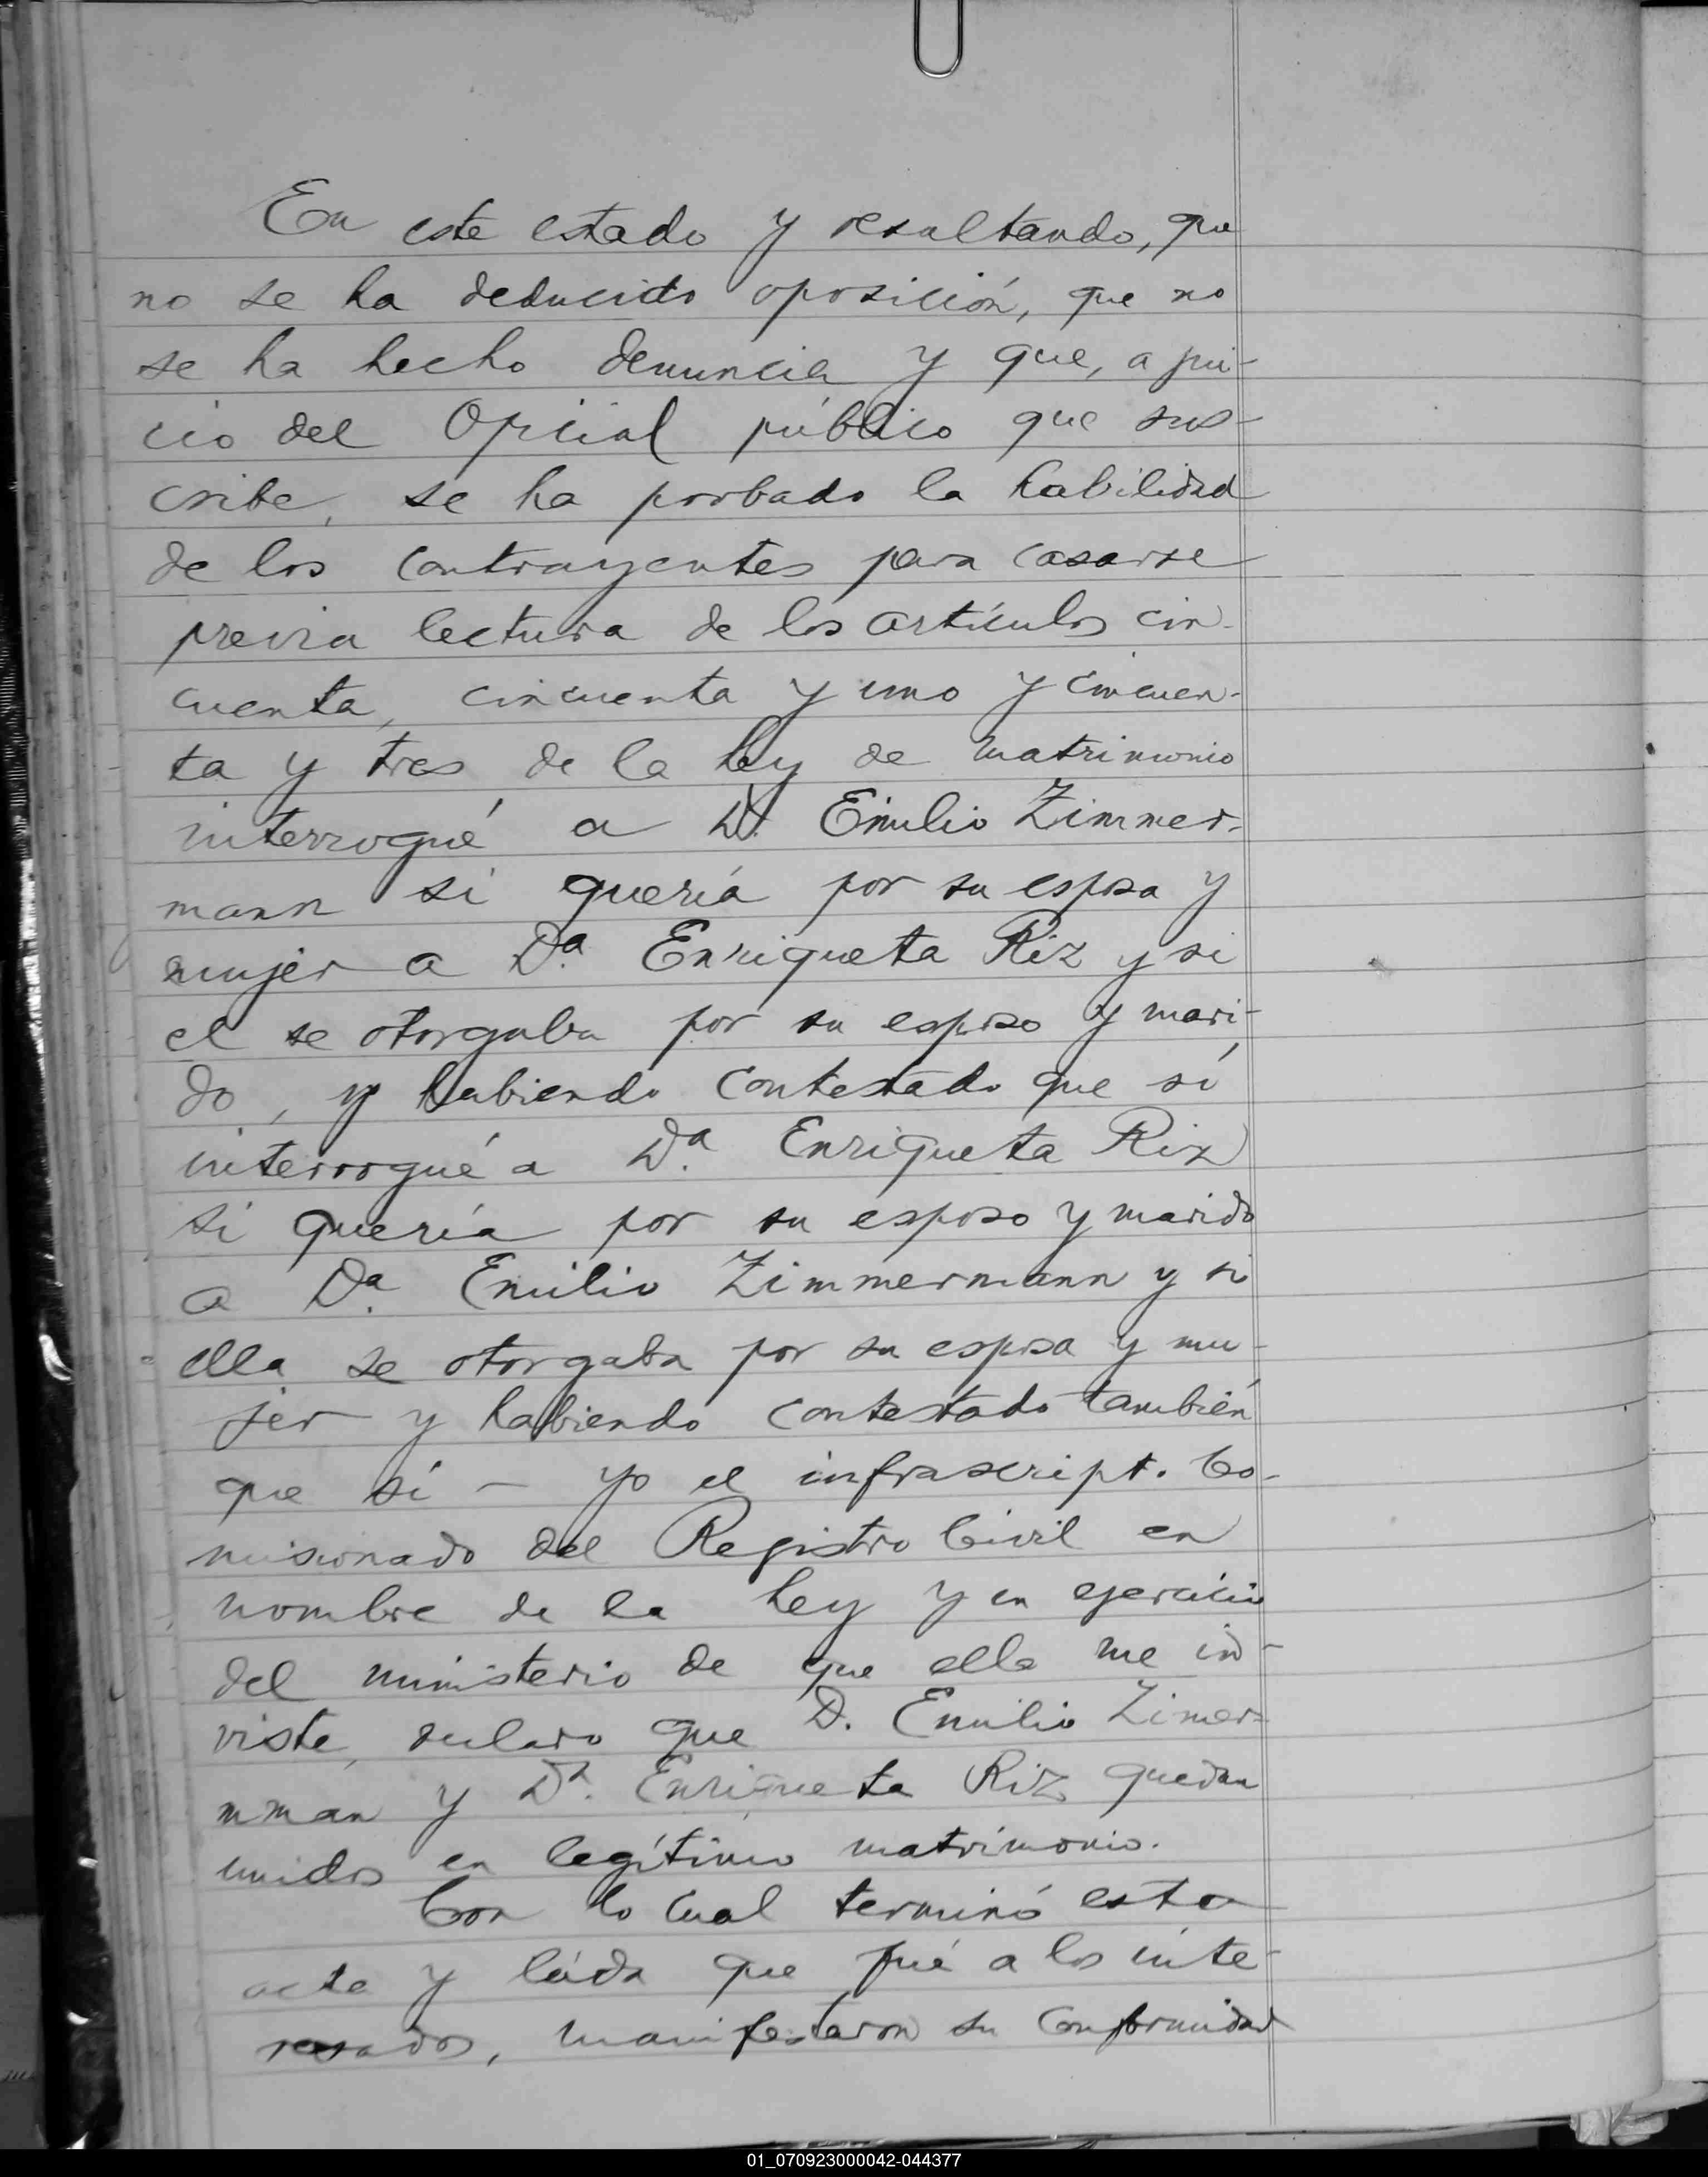 En este estado y resultando, que
no se ha deducido oposición, que no
se ha hecho denuncia y que, a jui-
cio del Oficial público que sus-
cribe, se ha probado la habilidad
de los contrayentes para casarse
previa lectura de los artículos cin-
cuenta, cincuenta y uno y cincuen-
ta y tres de la ley de matrimonio
interrogué a D. Emilio Zimmer-
mann si quería por su esposa y
mujer a Dª. Enriqueta Riz y si
el se otorgaba por su esposo y mari-
do, y habiendo contestado que sí
interrogué a Dª. Enriqueta Riz
si quería por su esposo y marido
a Dª. Emilio Zimmermann y si
ella se otorgaba por su esposa y mu-
jer y habiendo contestado también
que sí – yo el infrascript. Co-
misionado del Registro Civil en
nombre de la Ley y en ejercicio
del ministerio de que ella me in-
viste, declaro que D. Emilio Zimer-
mman y Dª. Enriqueta Riz quedan
unidos en legítimo matrimonio.
Con lo cual terminó esta
acta y leída que fué a los inte-
resados, manifestaron su conformidad
01_070923000042-044377